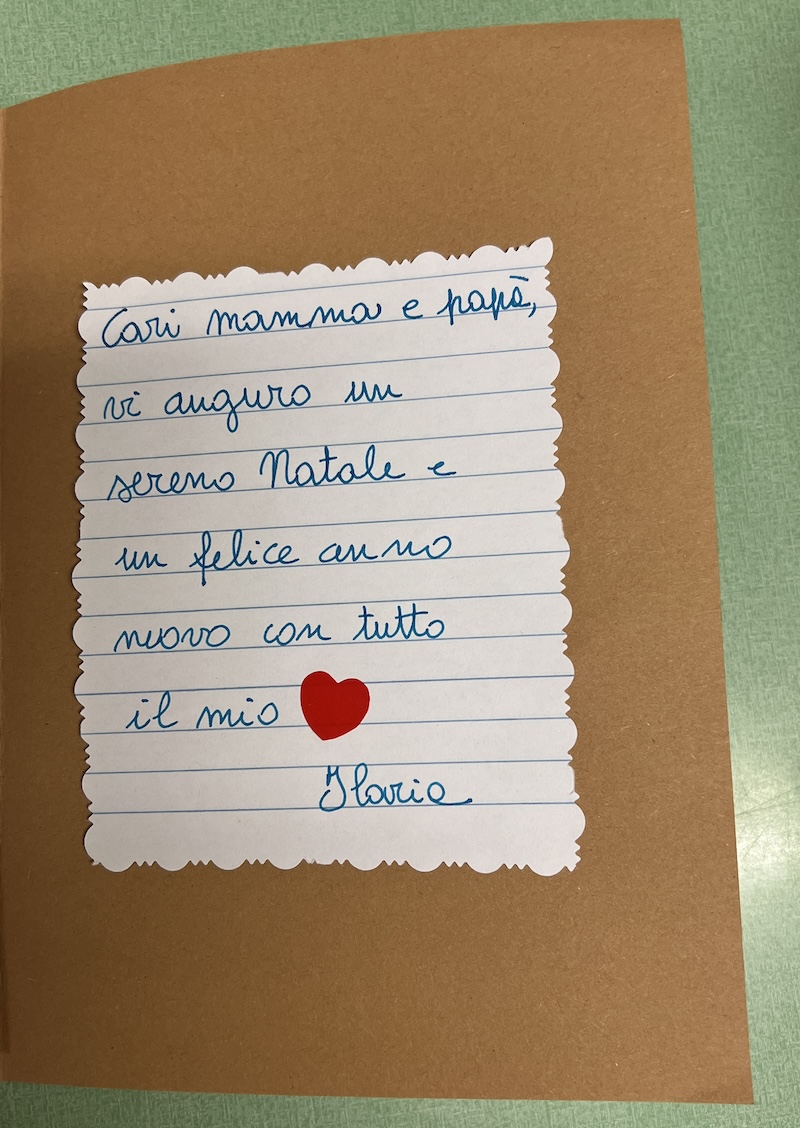 Cari mamma e papà,
vi auguro un
sereno Natale e
un felice anno
nuovo con tutto
il mio
Ilaria